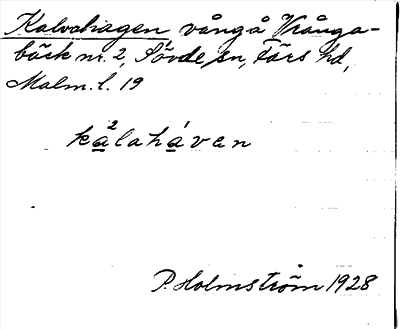 Kalvahagen vångå Vrånga-
bäck nr. 2, Sövde sn, Färs hd,
Malm. l. 19
ka²lahávan
P. Holmström 1928